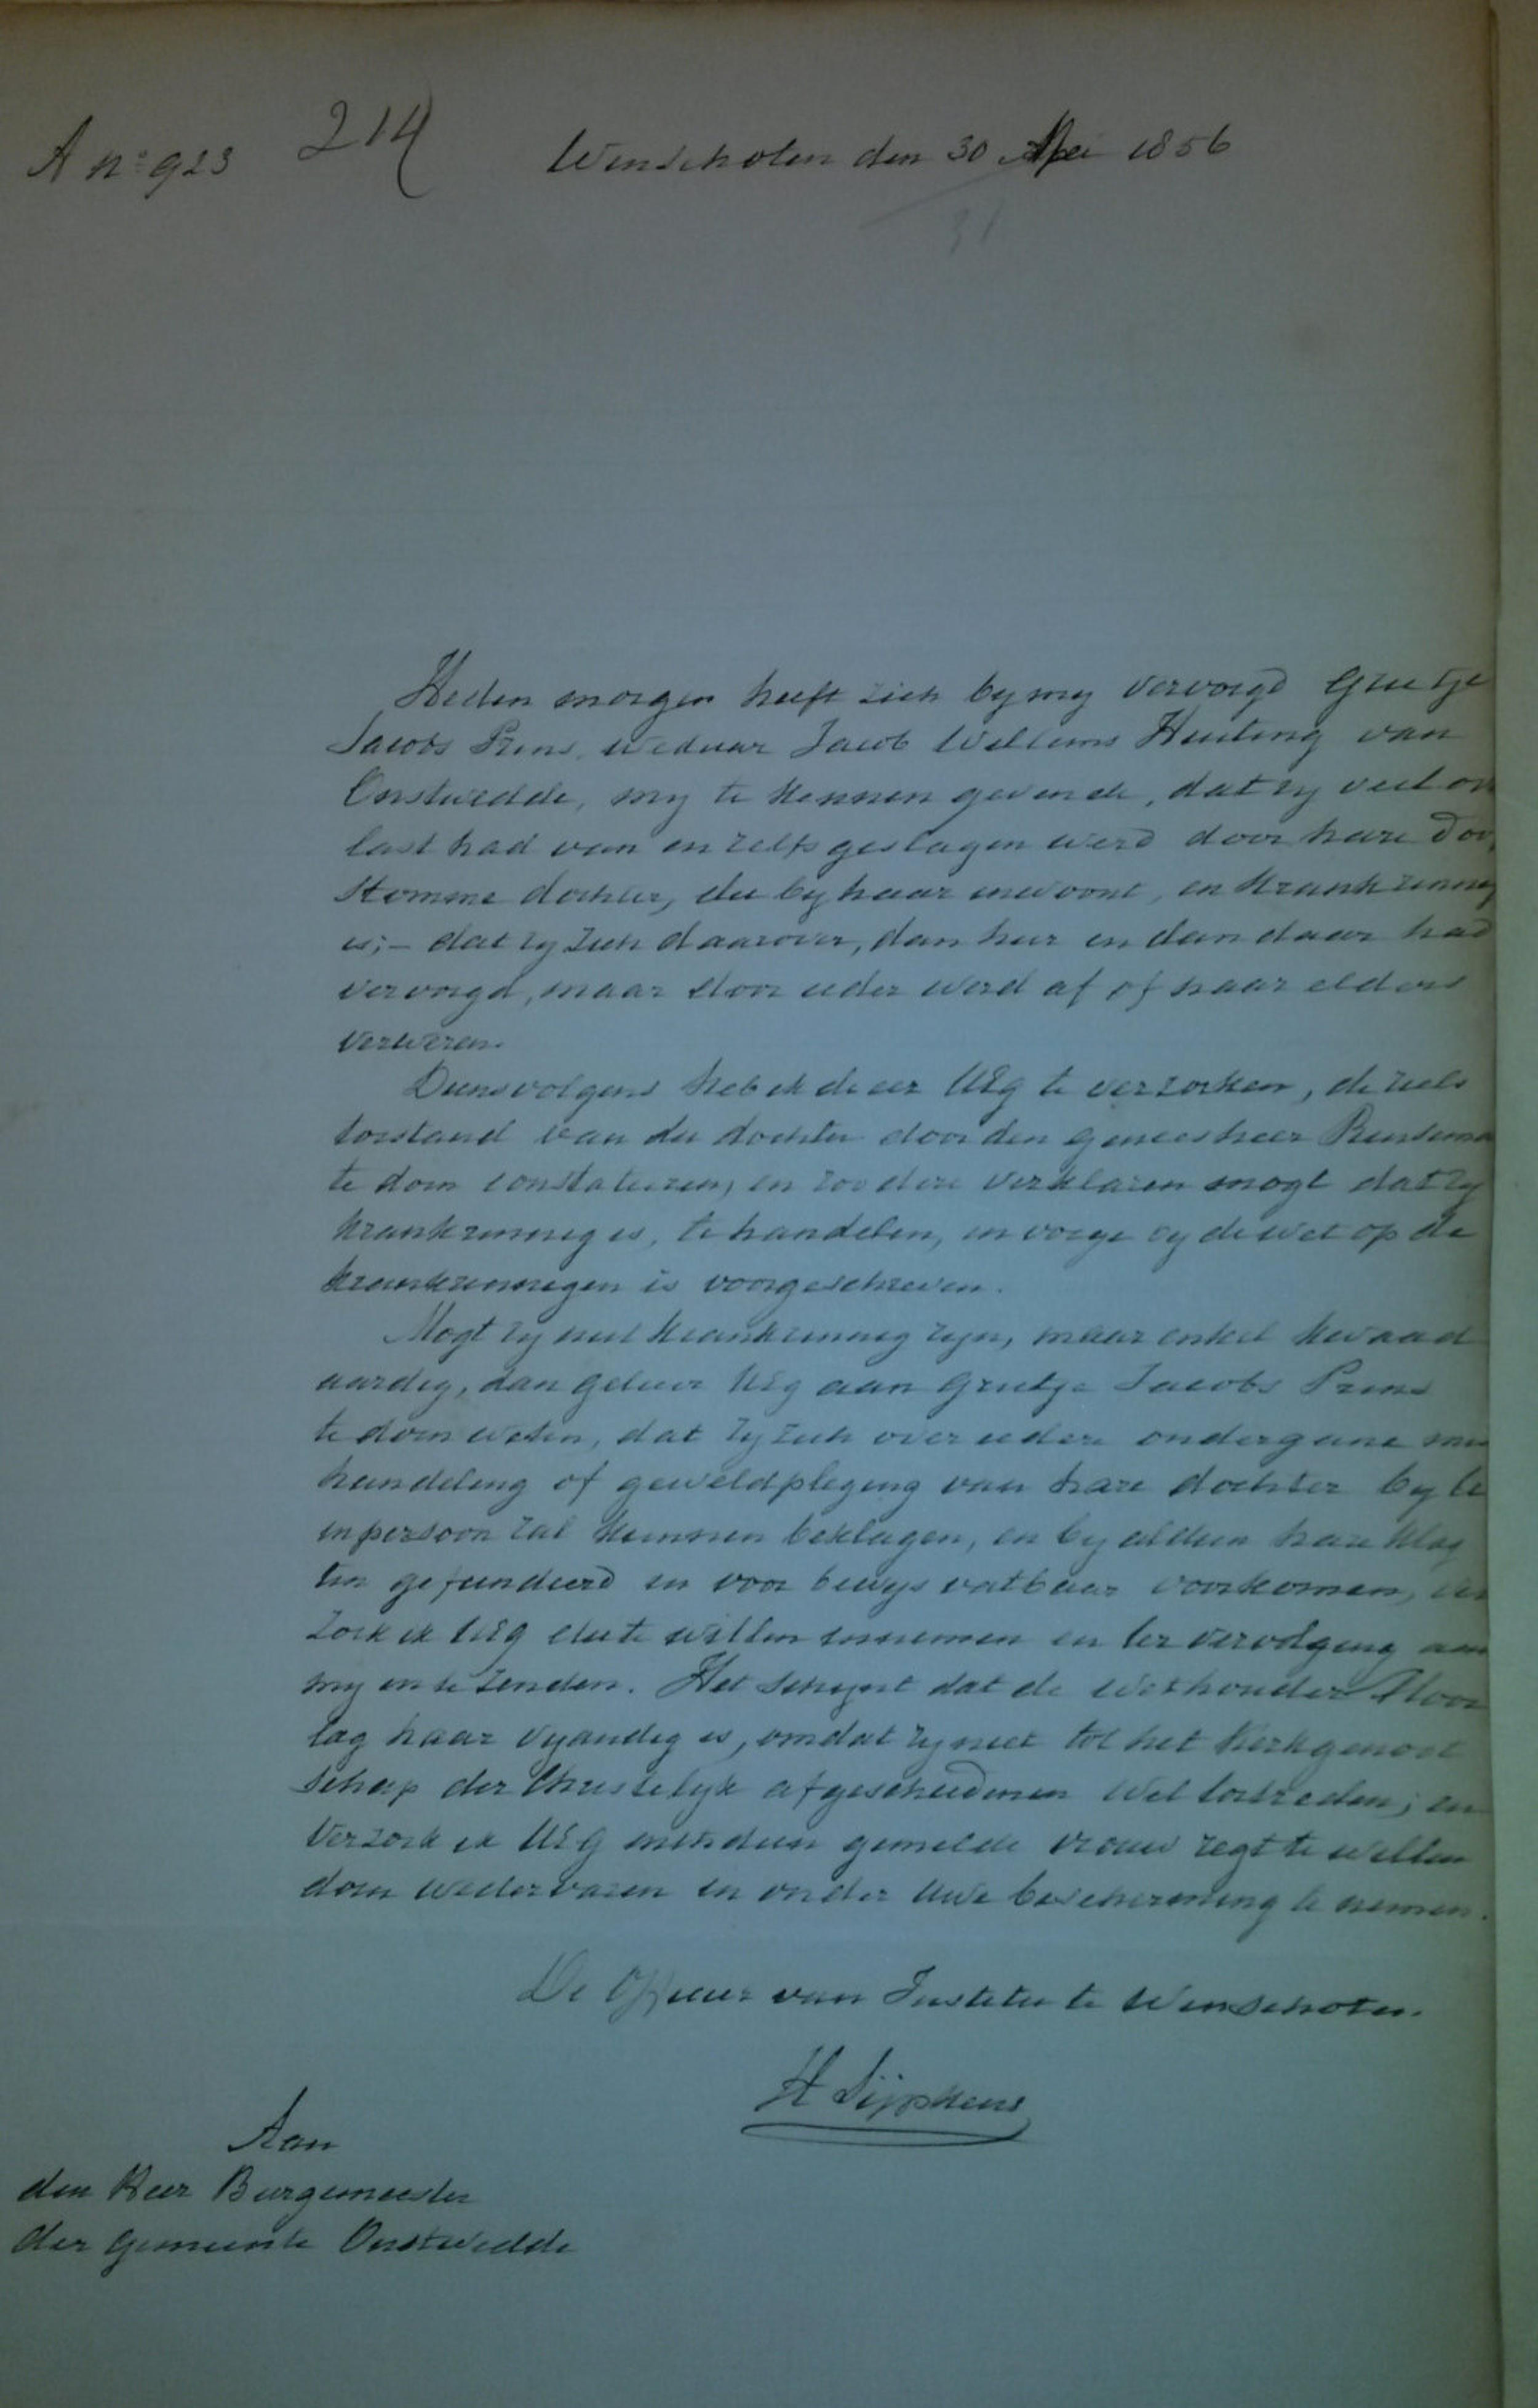 A no 923 214 Winschoten den 30 Mei 1856
31
Heden morgen heeft zich by my vervoegd Grietje
Jacobs Prins, weduwe Jacob Willems Huiting van
Onstwedde, my te kennen gevende, dat zy veel ov
last had van en zelfs geslagen werd door hare doof
stomme dochter, die by haar inwoont, en krankzinnig
is; – dat zy zich daarover, dan hier en dan daar had
vervoegd, maar door ieder werd af of naar elders
verwezen.
Diensvolgens heb ik de eer UEg te verzoeken, de ziels
toestand van die dochter door den geneesheer
te doen constateren, en zoo deze verklaren mogt dat zy
krankzinnig is, te handelen, in voege by de wet op de
krankzinnigen is voorgeschreven.
Mogt zy niet krankzinnig zyn, maar enkel kwaad
aardig, dan gelieve UEg aan Grietje Jacobs Prins
te doen weten, dat zy zich over iedere ondergane mis
handeling of geweldpleging van hare dochter by
in persoon zal kunnen beklagen, en by aldien hare klag
ten gefundeerd en voor bewys vatbaar voorkomen, ver
zoek ik UEg die te willen innemen en ter vervolging aan
my in te zenden. Het schynt dat de wethouder
lag haar vyandig is, omdat zy niet tot het kerkgenoot
schap der Christelyk afgescheidenen wil toetreden; en
verzoek ik UEg mitsdien gemelde vrouw regt te willen
doen wedervaren en onder Uwe bescherming te nemen.
De Officier van Justitie te Winschoten.
H Sijpkens
Aan
den Heer Burgemeester
der Gemeente Onstwedde